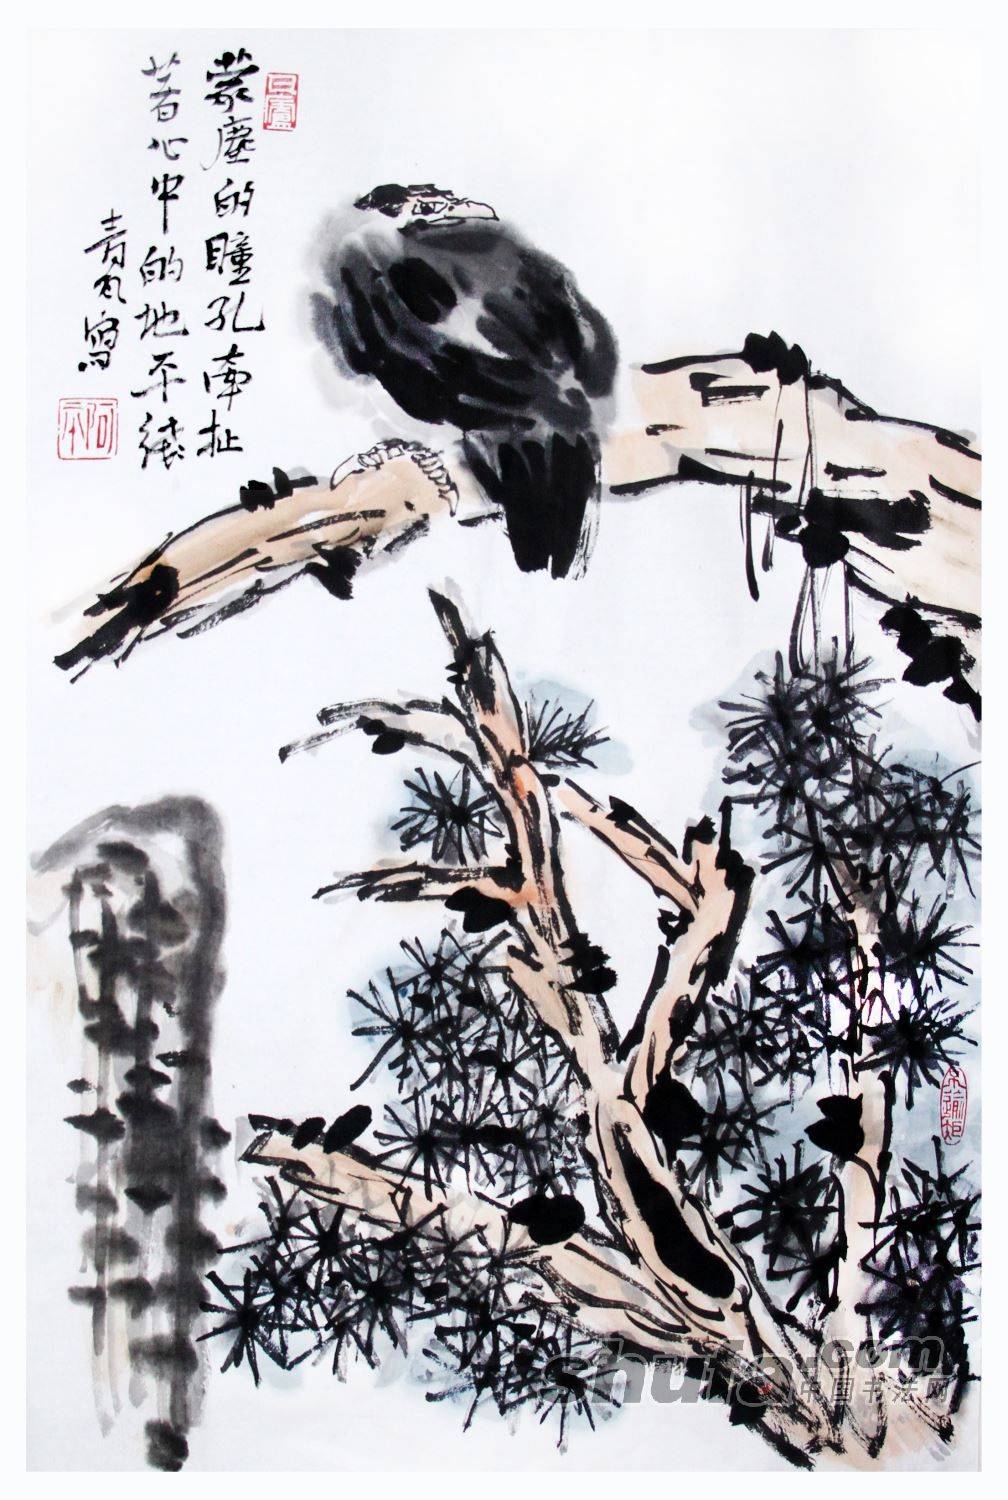 蒙塵的瞳孔牽扯
著心中的地平綫
青风寫
不逾矩
shufa.com
中国书法网